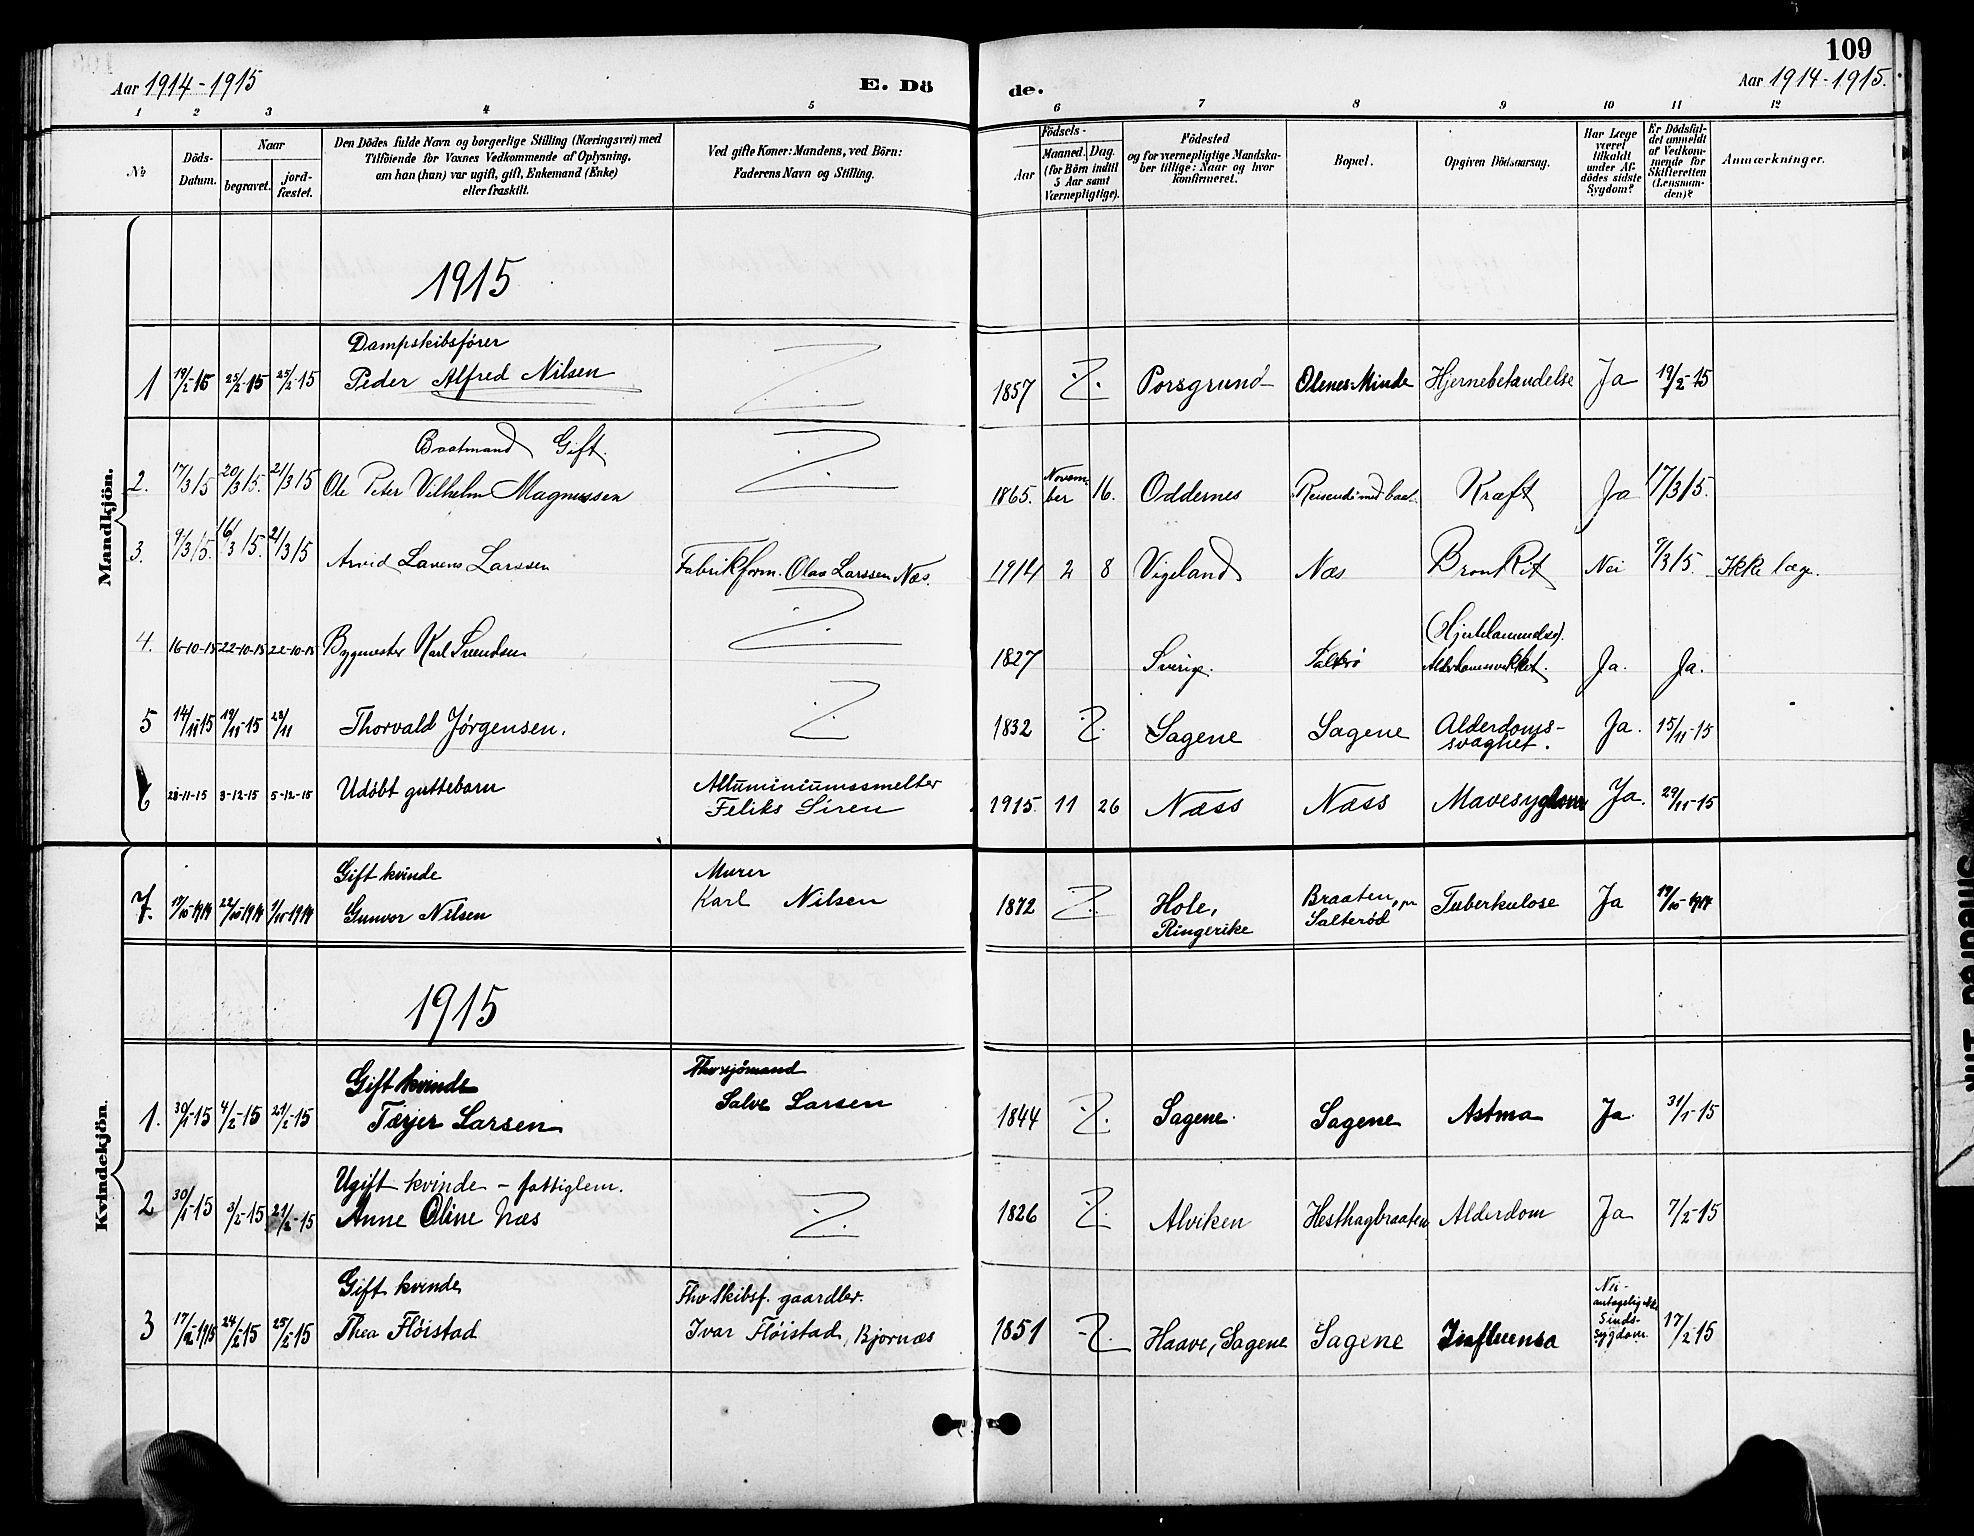 109
Aar 1914-1915
E. Dö
de.
Aar 1914-1915.
1 2 3 4 5 6 7 8 9 10 11 12
No
Döds-
Datum.
Naar
begravet.
jord-
fæstet.
Den Dödes fulde Navn og borgerlige Stilling (Næringsvei) med
Tilföiende for Voxnes Vedkommende af Oplysning,
om han (hun) var ugift, gift, Enkemand (Enke)
eller fraskilt.
Ved gifte Koner: Mandens, ved Börn:
Faderens Navn og Stilling.
Födsels-
Aar
Maaned. Dag.
(for Börn indtil
5 Aar samt
Værnepligtige).
Födested
og for værnepligtige Mandska-
ber tillige: Naar og hvor
konfirmeret.
Bopæl.
Opgiven Dödsaarsag.
Har Læge
været
tilkaldt
under Af-
dödes sidste
Sygdom?
Er Dödsfal-
det anmeldt
af Vedkom-
mende for
Skifteretten
(Lensman-
den)?
Anmærkninger.
Mandkjön.
1915
Dampskibsfører
1 19/2-15 25/2-15 25/2-15 Peder Alfred Nilsen 1857 Porsgrund Olenes Minde Hjernebetændelse Ja 19/2-15
Baatmand Gift.
2. 17/3 15 20/3 15. 21/3 15 Ole Peter Vilhelm Magnussen 1865. Novem-
ber 16. Oddernes Reisende med baat. Kræft Ja 17/3 15.
3. 9/3 15. 16/3 15. 21/3 15 Arvid Larssen Fabrikform. Olav Larssen Næs. 1914 2 8 Vigeland Næs Bronkit Nei 9/3 15. Ikke læge.
4. 16-10-15 22-10-15 22-10-15 Bygmester Karl Svendsen 1827 Sverige. Salterö Ja. Ja.
5 14/11 15 19/11-15 28/11 Thorvald Jørgensen. 1832 Sagene Sagene Alderdoms-
svaghet. Ja. 15/11-15
Alluminiumssmelter
6 28-11-15 3-12-15 5-12-15 Udöbt guttebarn Feliks Siren 1915. 11 26 Næss Næss Mavesygdom Ja. 29/11-15
Kvindekjön.
Gift kvinde Murer
7. 19/10-1914 22/10 1914 1/11-1914 Gunvor Nilsen Karl Nilsen 1872 Hole,
Ringerike Braaten, pr
Salterød Tuberkulose Ja 19/10-1914
1915
Gift kvinde Fhv sjömand
1. 30/1-15 4/2-15 21/2-15 Tærjer Larsen Salve Larsen 1844 Sagene. Sagene Astma Ja 31/1-15
Ugift kvinde – fattiglem.
2 30/1-15 3/2-15 21/2-15 Anne Oline Næs 1826 Alviken Hesthagbraaten Alderdom Ja 7/2-15
Gift kvinde Fhv skibsf. gaardbr.
3 17/2-1915 24/2-15 25/2-15 Thea Flöistad Ivar Flöistad, Bjornæs 1851 Haave, Sagene Sagene Influensa Nei-
antagelig
Sinds-
sygdom. 17/2-15